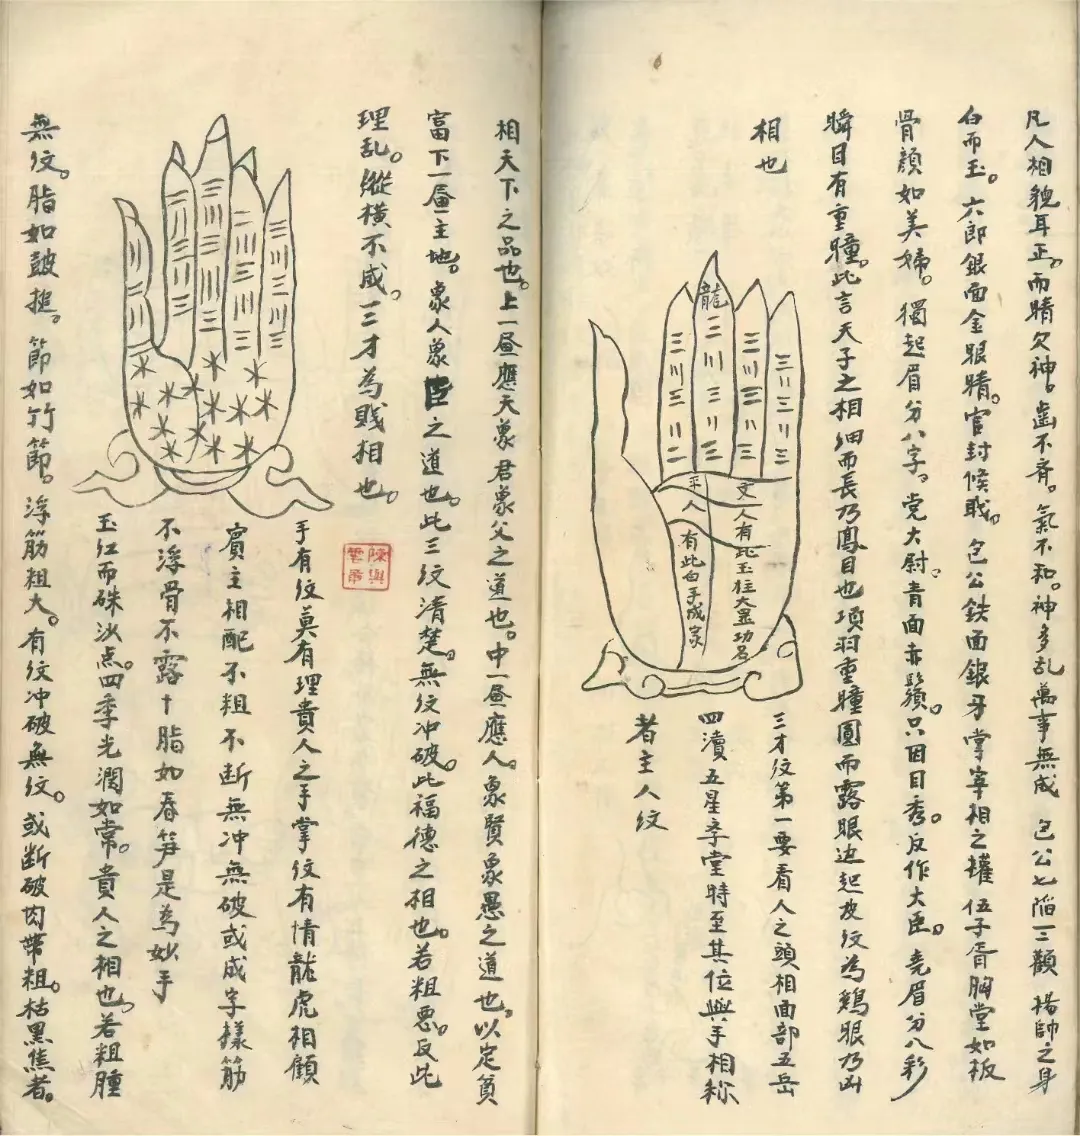 凡人相貌耳正。而睛欠神。齒不齊。氣不和。神多乱萬事無成 包公七陷三顴 楊帥之身
白而玉。六郎銀面金眼睛。官封候戝。包公鉄面銀牙掌宰相之權 伍子胥胸堂如板
骨顔如美婦。獨起眉分八字。党大尉青面赤鬚。只因目秀。反作大臣。堯眉分八彩
瞬目有重瞳。此言天子之相细而長乃鳳目也項羽重瞳圓而露眼边起皮纹為鷄眼乃凶
相也
龍
三川三川三
二川三川三
三川三川二
三川三川三
文
人有此玉柱大器功名
平人
有此白手成家
三才纹第一要看人之頭相面部五岳
四瀆五星李堂時至其位與手相称
者主人纹
相天下之品也。上一昼應天象君象父之道也。中一昼應人。象賢象愚之道也。以定貧
富下一昼主地。象人象臣之道也。此三纹清楚。無纹冲破。此福德之相也。若粗恶。反此
理乱。縱横不成。一三才為賎相也。
陳興
手有纹莫有理貴人之手掌纹有情龍虎相顧
賓主相配不粗不断無冲無破或成字樣筋
不浮骨不露十脂如春笋是為妙手
玉红而硃沙点。四季光潤如常。貴人之相也。若粗腫
無纹。脂如皷搥。節如竹節。浮筋粗大。有纹冲破無纹。或断破肉帶粗。枯黑焦者。